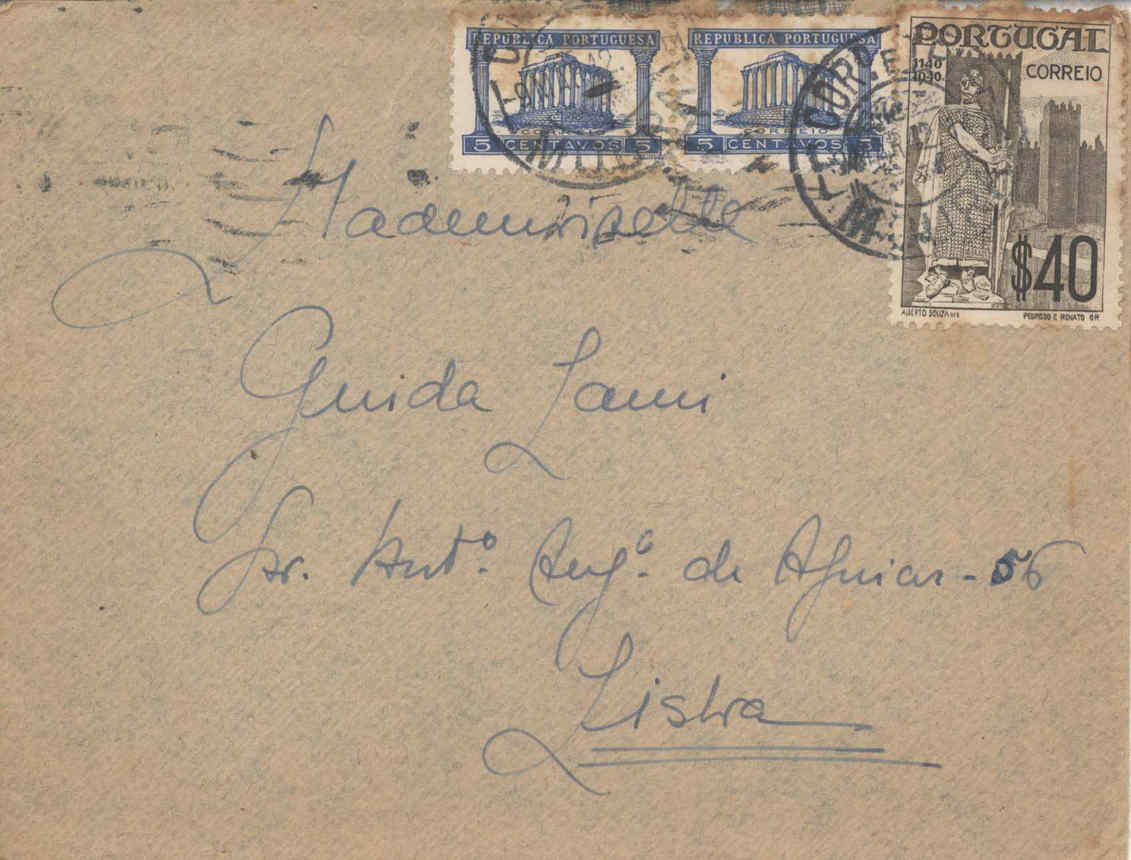 REPUBLICA PORTUGUESA
5 CENTAVOS 5
REPUBLICA PORTUGUESA
CORREIO
5 CENTAVOS 5
PORTUGAL
1140
1940
CORREIO
$40
ALBERTO SOUZA
PEDROSO E RENATO GR
Mademoiselle
Guida Lami
Antº. Augº. de Aguiar - 56
Lisboa